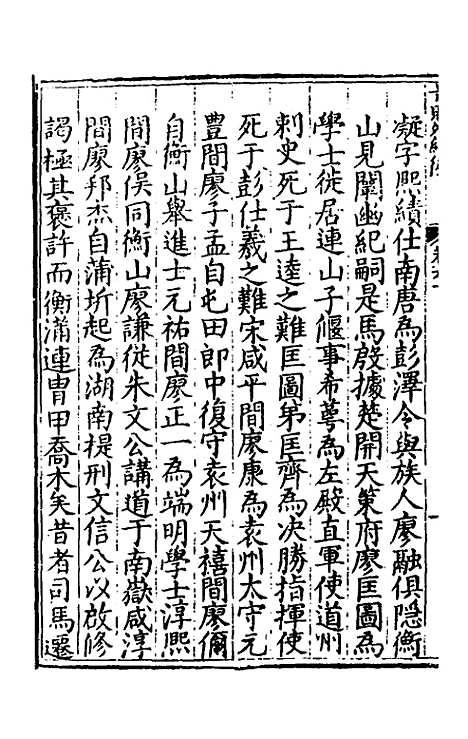 凝字熙績仕南唐為彭澤令與族人廖融俱隱衡
山見闡幽紀嗣是馬殷據楚開天策府廖匡圖為
學士徙居連山子偃事希萼為左殿直軍使道州
刺史死于王逵之難匡圖弟匡齊為决勝指揮使
死于彭仕羲之難宋咸平間廖康為袁州太守元
豐間廖子孟自屯田郎中復守袁州天禧間廖儞
自衡山舉進士元祐間廖正一為端明學士淳熙
間廖俁同衡山廖謙從朱文公講道于南嶽咸淳
間廖邦杰自蒲圻起為湖南提刑文信公以啟修
謁極其褒許而衡滿連胄甲喬木矣昔者司馬遷